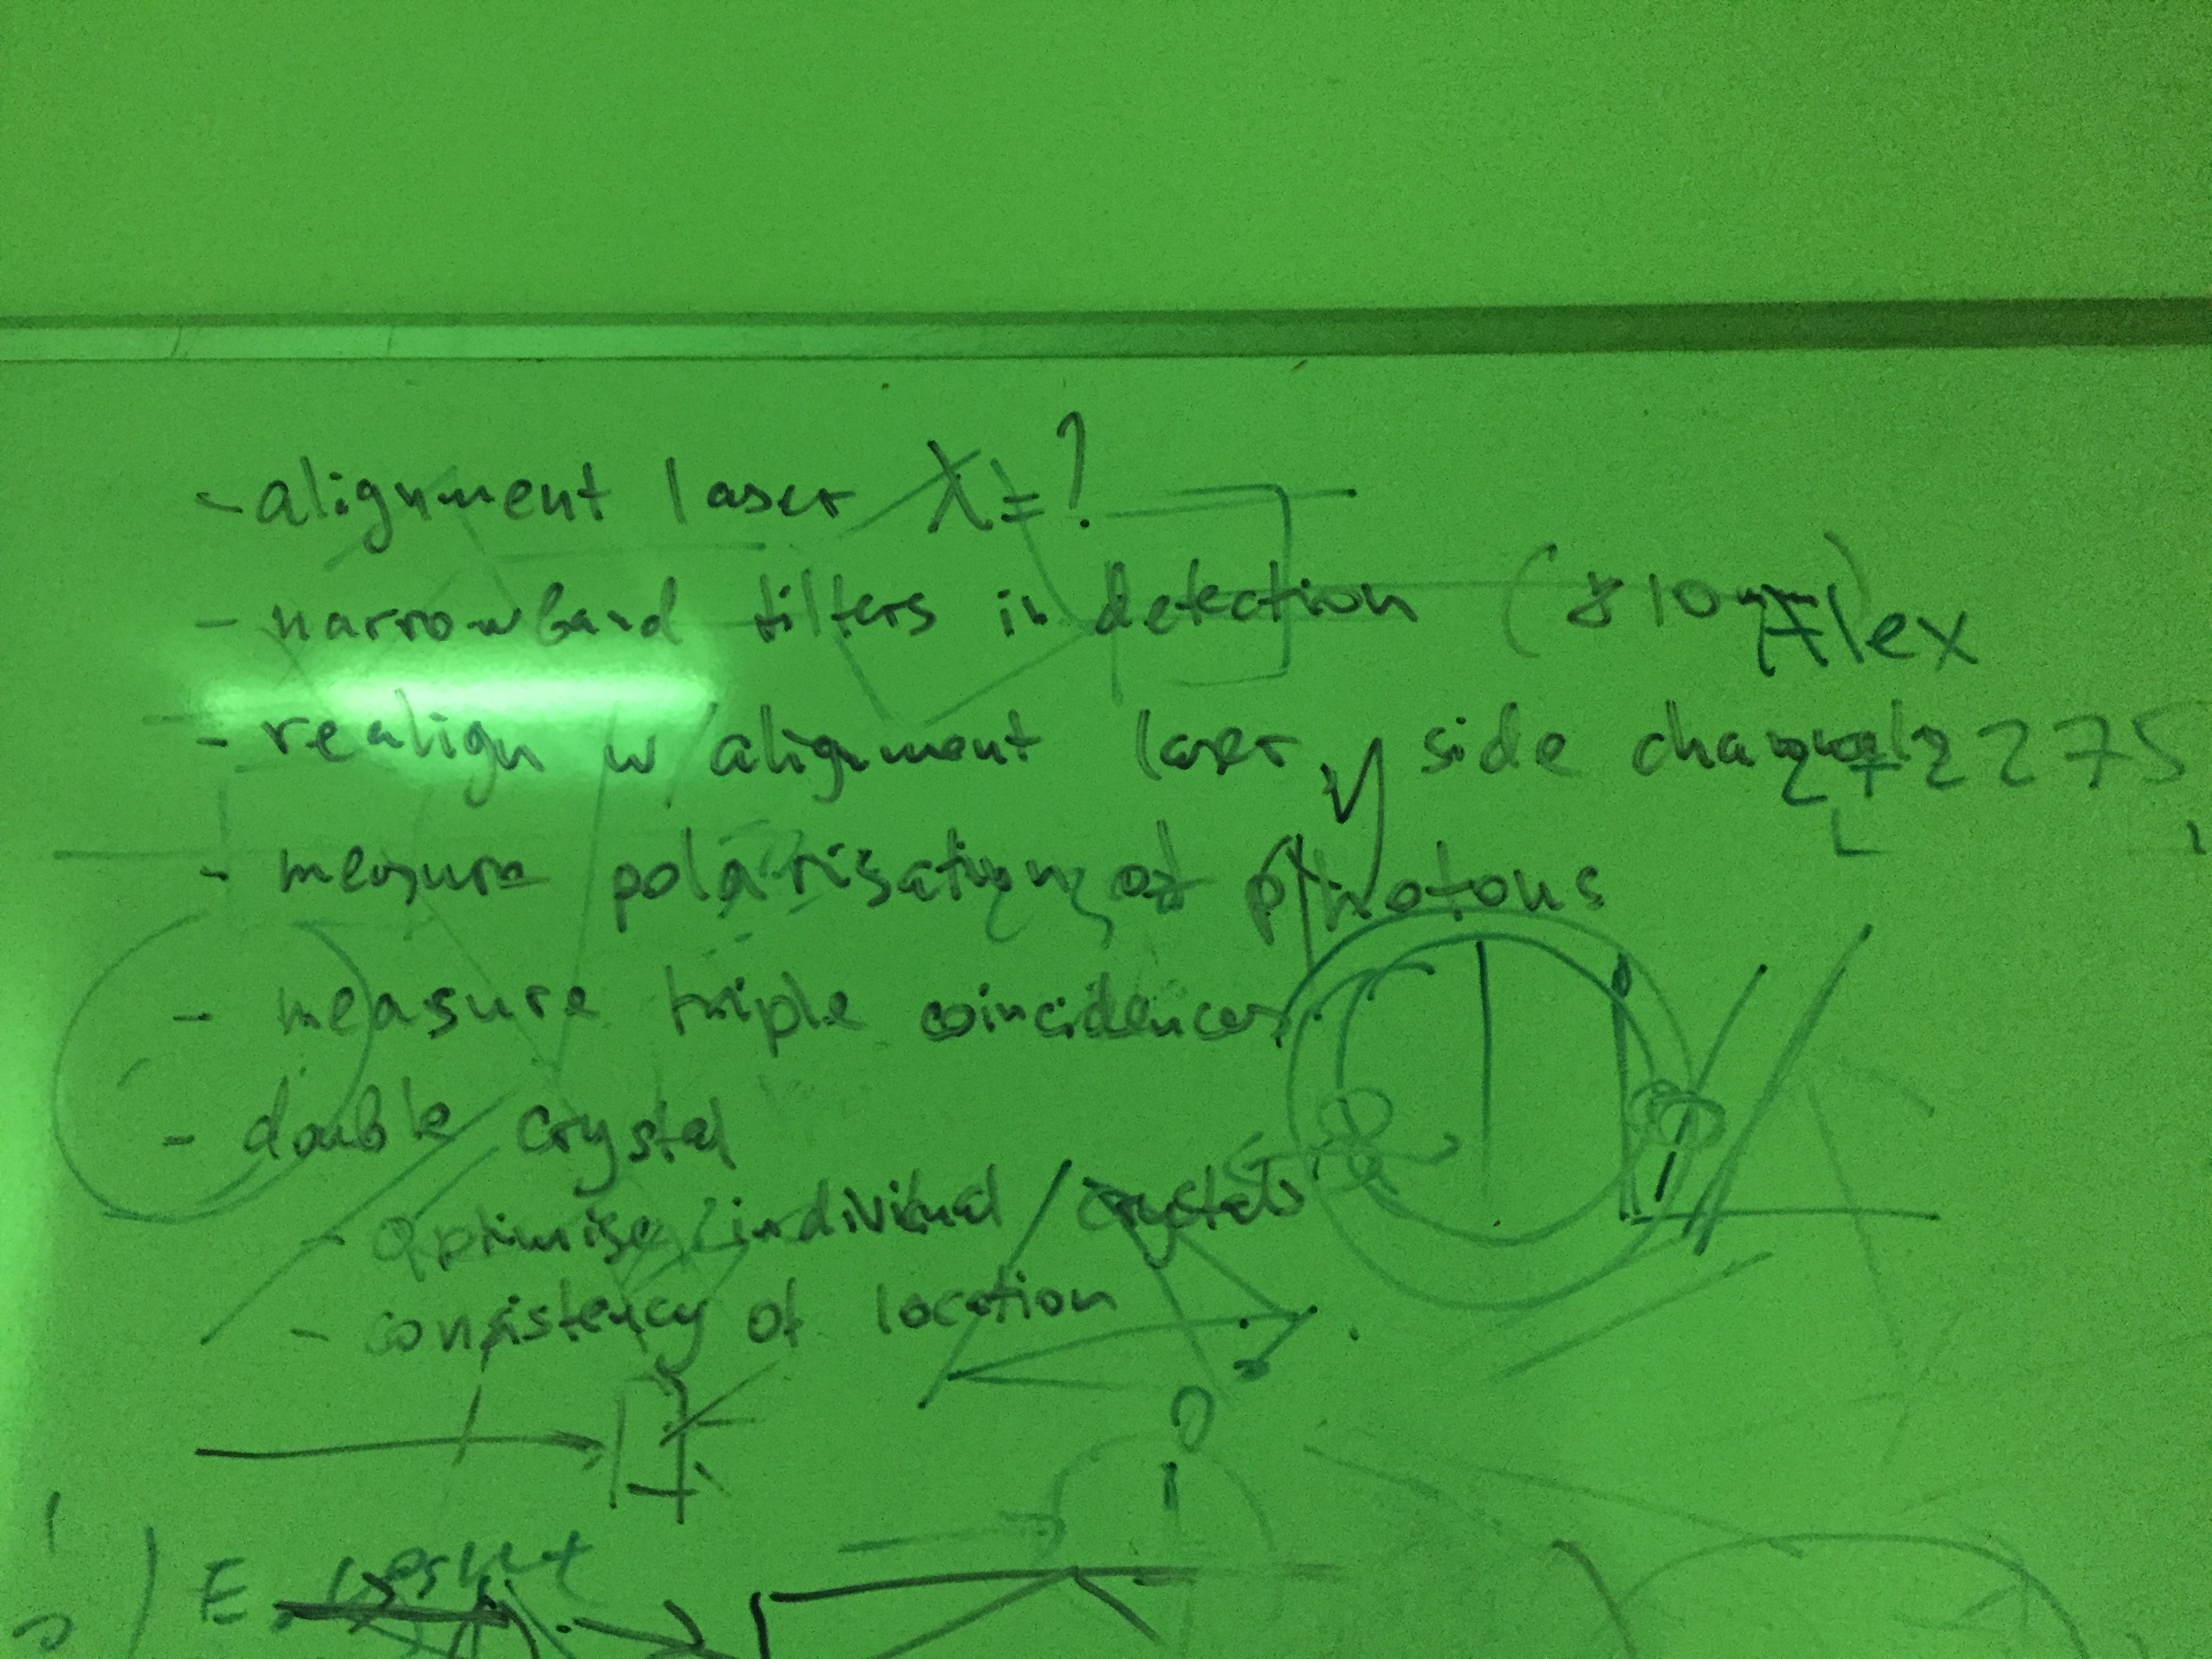 - alignment laser λ = ?
- narrowband filters in detection (810nm)
Alex
- realign w alignment laser, side channels
2275
- measure polarisation of photons
- measure triple coincidences
- double crystal
- optimise individual crystals
- consistency of location
E